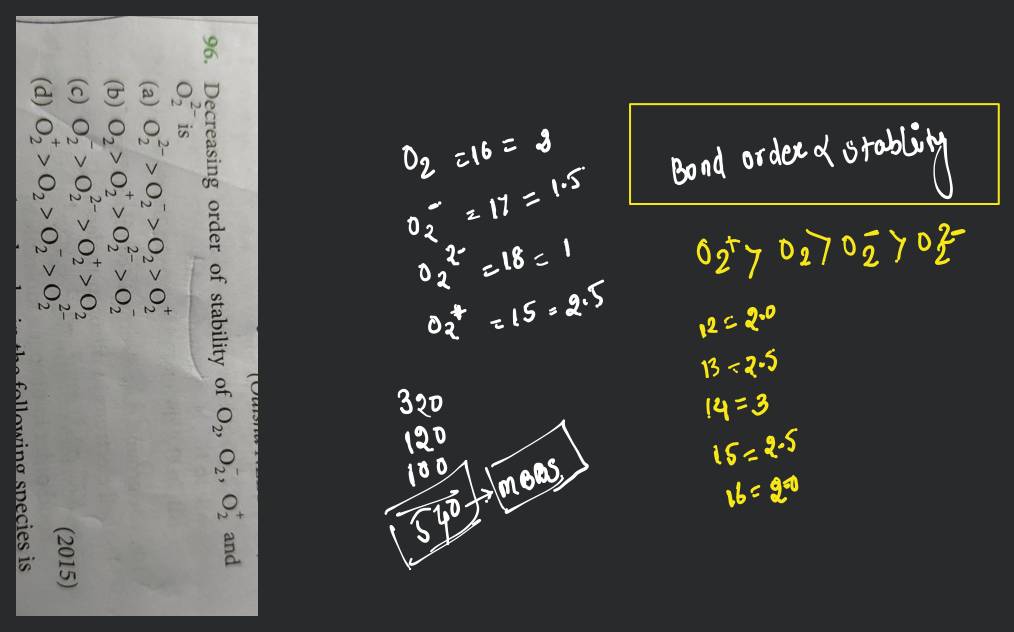 96. Decreasing order of stability of O₂, O₂⁻, O₂⁺ and
O₂²⁻ is
(a) O₂²⁻ > O₂⁻ > O₂ > O₂⁺
(b) O₂ > O₂⁺ > O₂²⁻ > O₂⁻
(c) O₂⁻ > O₂²⁻ > O₂⁺ > O₂
(d) O₂⁺ > O₂ > O₂⁻ > O₂²⁻
(2015)
the following species is
O₂ =16 =
O₂⁻ = 17 = 1.5
O₂²⁻ =18 = 1
O₂⁺ =15 = 2.5
320
120
100
540 → MBBS
Bond order α stablity
O₂⁺ > O₂ > O₂⁻ > O₂²⁻
12 = 2.0
13 = 2.5
14 = 3
15 = 2.5
16 = 2.0